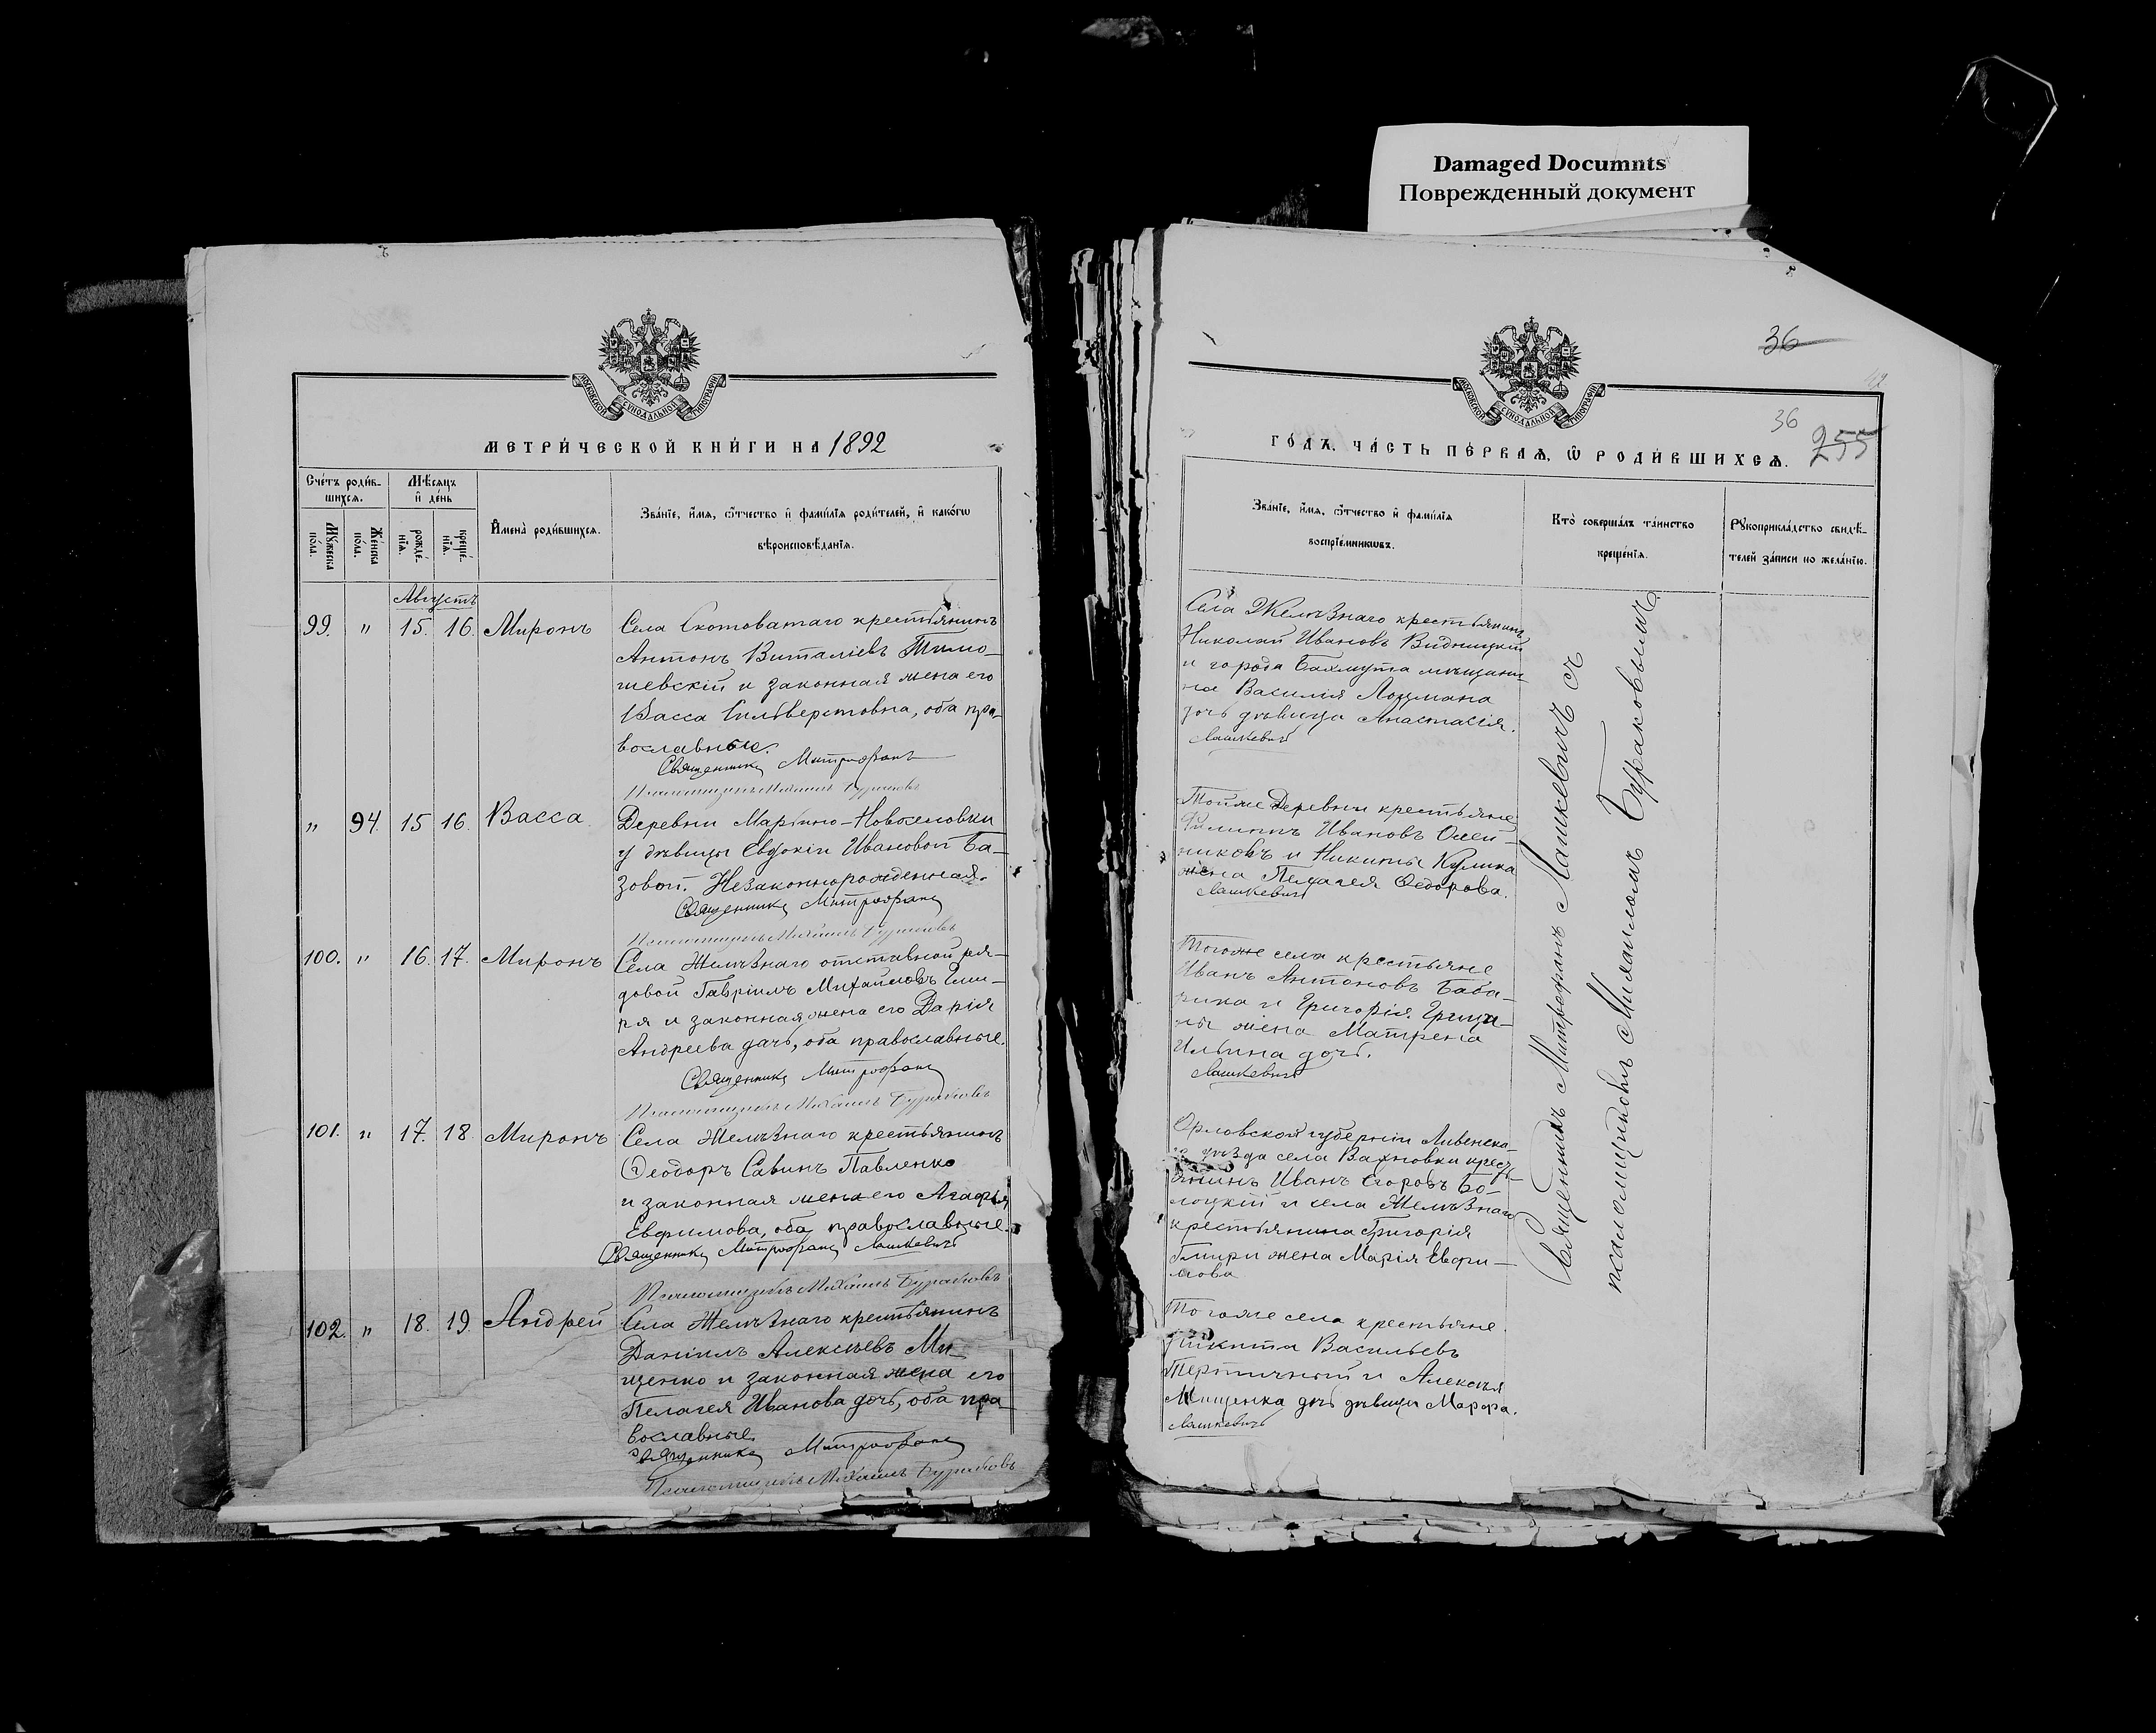 Damaged Documnts
Поврежденный документ
МОСКОВСКОЙ СѴНОДАЛЬНОЙ ТИПОГРАФІИ
МЕТРИ́ЧЕСКОЙ КНИ́ГИ НА 1892
Сче́тъ роди́в-
шихсѧ.
Мѣ́сѧцъ
и҆ де́нь
Мꙋ́жеска
по́ла.
Же́нска
по́ла.
рожде́-
нїѧ.
креще́-
нїѧ.
И҆мена̀ роди́вшихсѧ.
Зва́нїе, и҆́мѧ, ѻ҆́тчество и҆ фами́лїѧ роди́телей, и҆ како́гѡ
вѣроисповѣ́данїѧ.
Августъ
99. " 15. 16. Миронъ
Села Скотоватаго крестьянинъ
Антонъ Виталіевъ Тимо-
шевскій и законная жена его
Васса Сильверстовна, оба пра-
вославные.
Священникъ Митрофанъ
Псаломщикъ Михаилъ Бураковъ
" 94. 15 16. Васса
Деревни Марьино-Новоселовки
у дѣвицы Евдокіи Ивановой Ба-
зовой. Незаконнорожденная.
Священникъ Митрофанъ
Псаломщикъ Михаилъ Бураковъ
100. " 16. 17. Миронъ
Села Желѣзнаго отставной ря-
довой Гавріилъ Михайловъ Гми-
ря и законная жена его Дарія
Андреева дочь, оба православные.
Священникъ Митрофанъ
Псаломщикъ Михаилъ Бураковъ
101. " 17. 18. Миронъ
Села Желѣзнаго крестьянинъ
Ѳеодоръ Савинъ Павленко
и законная жена его Агафья
Евфимова, оба православные.
Священникъ Митрофанъ Лашкевичъ
Псаломщикъ Михаилъ Бураковъ
102. " 18. 19. Андрей
Села Желѣзнаго крестьянинъ
Даніилъ Алексѣевъ Ми-
щенко и законная жена его
Пелагея Иванова дочь, оба пра
вославные
Священникъ Митрофанъ
Псаломщикъ Михаилъ Бураковъ
36
42
36
255
МОСКОВСКОЙ СѴНОДАЛЬНОЙ ТИПОГРАФІИ
ГО́ДЪ. ЧА́СТЬ ПЕ́РВАѦ, Ѡ҆ РОДИ́ВШИХСѦ.
Зва́нїе, и҆́мѧ, ѻ҆́тчество и҆ фами́лїѧ
воспрїе́мникѡвъ.
Кто̀ соверша́лъ та́инство
креще́нїѧ.
Рꙋкоприкла́дство свидѣ́-
телей за́писи по жела́нїю.
Села Желѣзнаго крестьянинъ
Николай Ивановъ Видницкій
и города Бахмута мѣщани-
на Василія Лоцмана
дочь дѣвица Анастасія.
Лашкевичъ
Тойже Деревни крестьяне
Филиппъ Ивановъ Олей-
никовъ и Никиты Кулика
жена Пелагея Ѳедорова.
Лашкевичъ
Тогоже села крестьяне
Иванъ Антоновъ Баба-
рика и Григорія Грица-
ны жена Матрена
Ильина дочь.
Лашкевичъ
Орловской губерніи Ливенска-
го уѣзда села Вахновки кресть-
янинъ Иванъ Егоровъ Бо-
лоцкій и села Желѣзнаго
крестьянина Григорія
Гмири жена Марія Евфи-
мова
Тогоже села крестьяне
Никита Васильевъ
Тертичный и Алексѣя
Мищенка дочь дѣвица Марфа.
Лашкевичъ
Священникъ Митрофанъ Лашкевичъ съ
псаломщикомъ Михаиломъ Бураковымъ